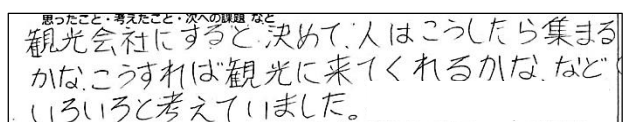 思ったこと・考えたこと・次への課題 など
観光会社にすると、決めて、人はこうしたら集まる
かな、こうすれば観光に来てくれるかな、など
いろいろと考えていました。